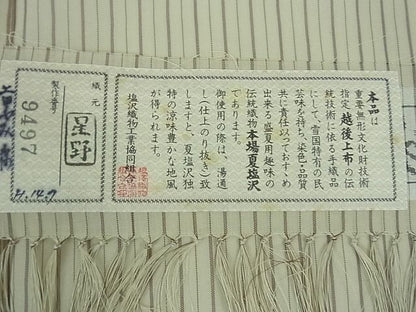 本品は
重要無形文化財技術
指定越後上布の伝
統技術に依る手織品
にして、雪国特有の民
芸味を持ち、染色・品質
共に責任以っておすゝめ
出来る盛夏用趣味の
伝統織物本場夏塩沢
であります。
御使用の際は、湯通
し(仕上のり抜き)致
しますと、夏塩沢独
特の涼味豊かな地風
が得られます。
塩沢織物工業協同組合
織元
星野
製作番号
9497